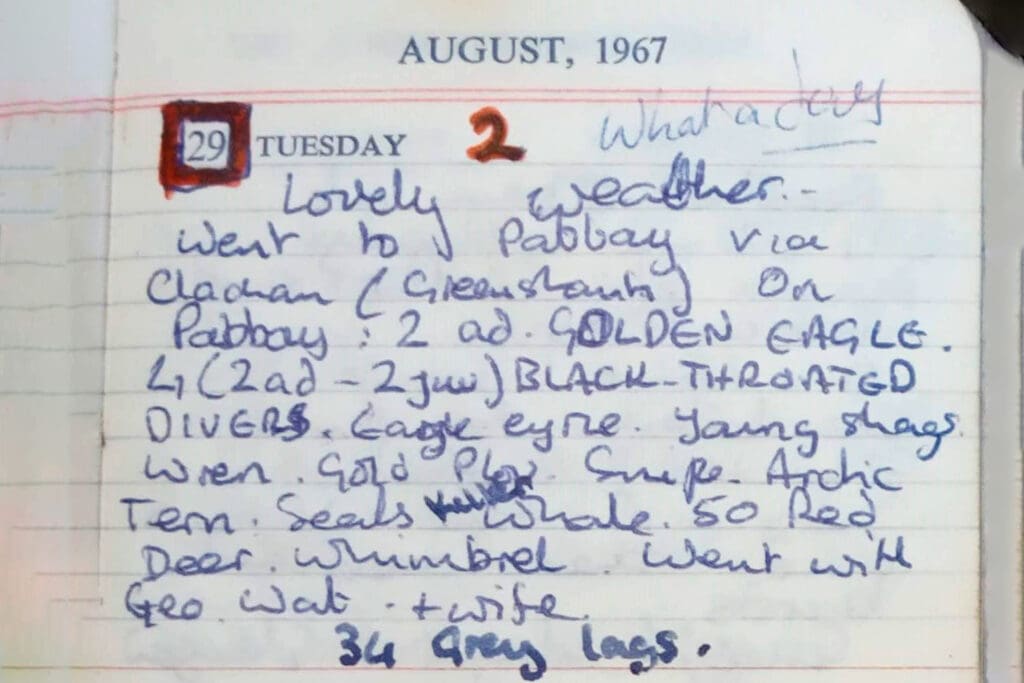 AUGUST, 1967
29 TUESDAY 2 What a day
Lovely weather.-
Went to Pabbay via
Clachan (Greenshank) On
Pabbay : 2 ad. GOLDEN EAGLE.
4 (2ad - 2 juv) BLACK-THROATED
DIVERS. Eagle eyrie. Young shags.
Wren. Gold Plov. Snipe. Arctic
Tern. Seals Killer Whale. 50 Red
Deer. Whimbrel. Went with
Geo. Wat. + wife.
34 Grey lags.